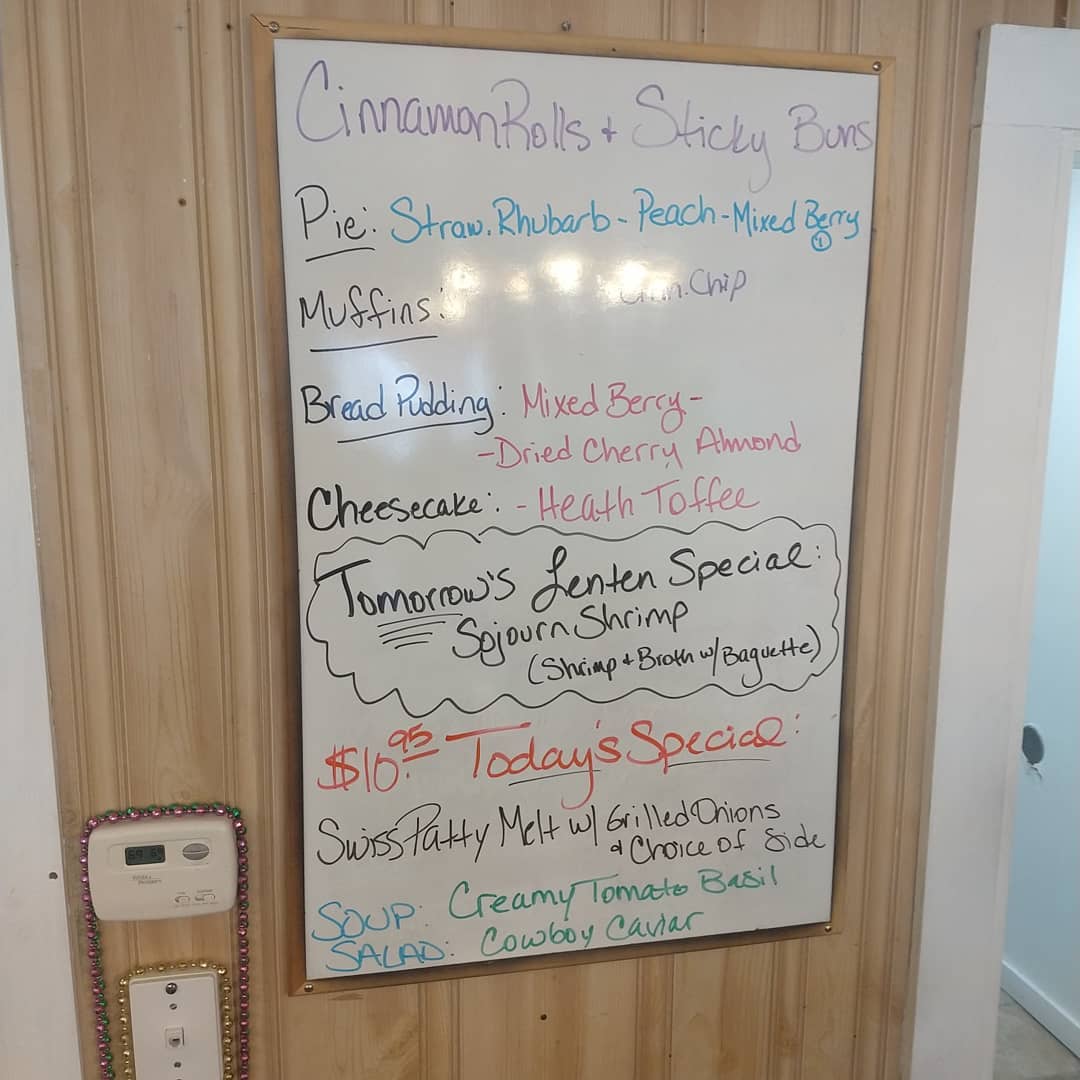 Cinnamon Rolls + Sticky Buns
Pie: Straw. Rhubarb - Peach - Mixed Berry
1
Muffins: Chip
Bread Pudding: Mixed Berry -
- Dried Cherry Almond
Cheesecake: - Heath Toffee
Tomorrow's Lenten Special:
Sojourn Shrimp
(Shrimp + Broth w/ Baguette)
$10.95 Today's Special:
Swiss Patty Melt w/ Grilled Onions
+ Choice of Side
SOUP: Creamy Tomato Basil
SALAD: Cowboy Caviar